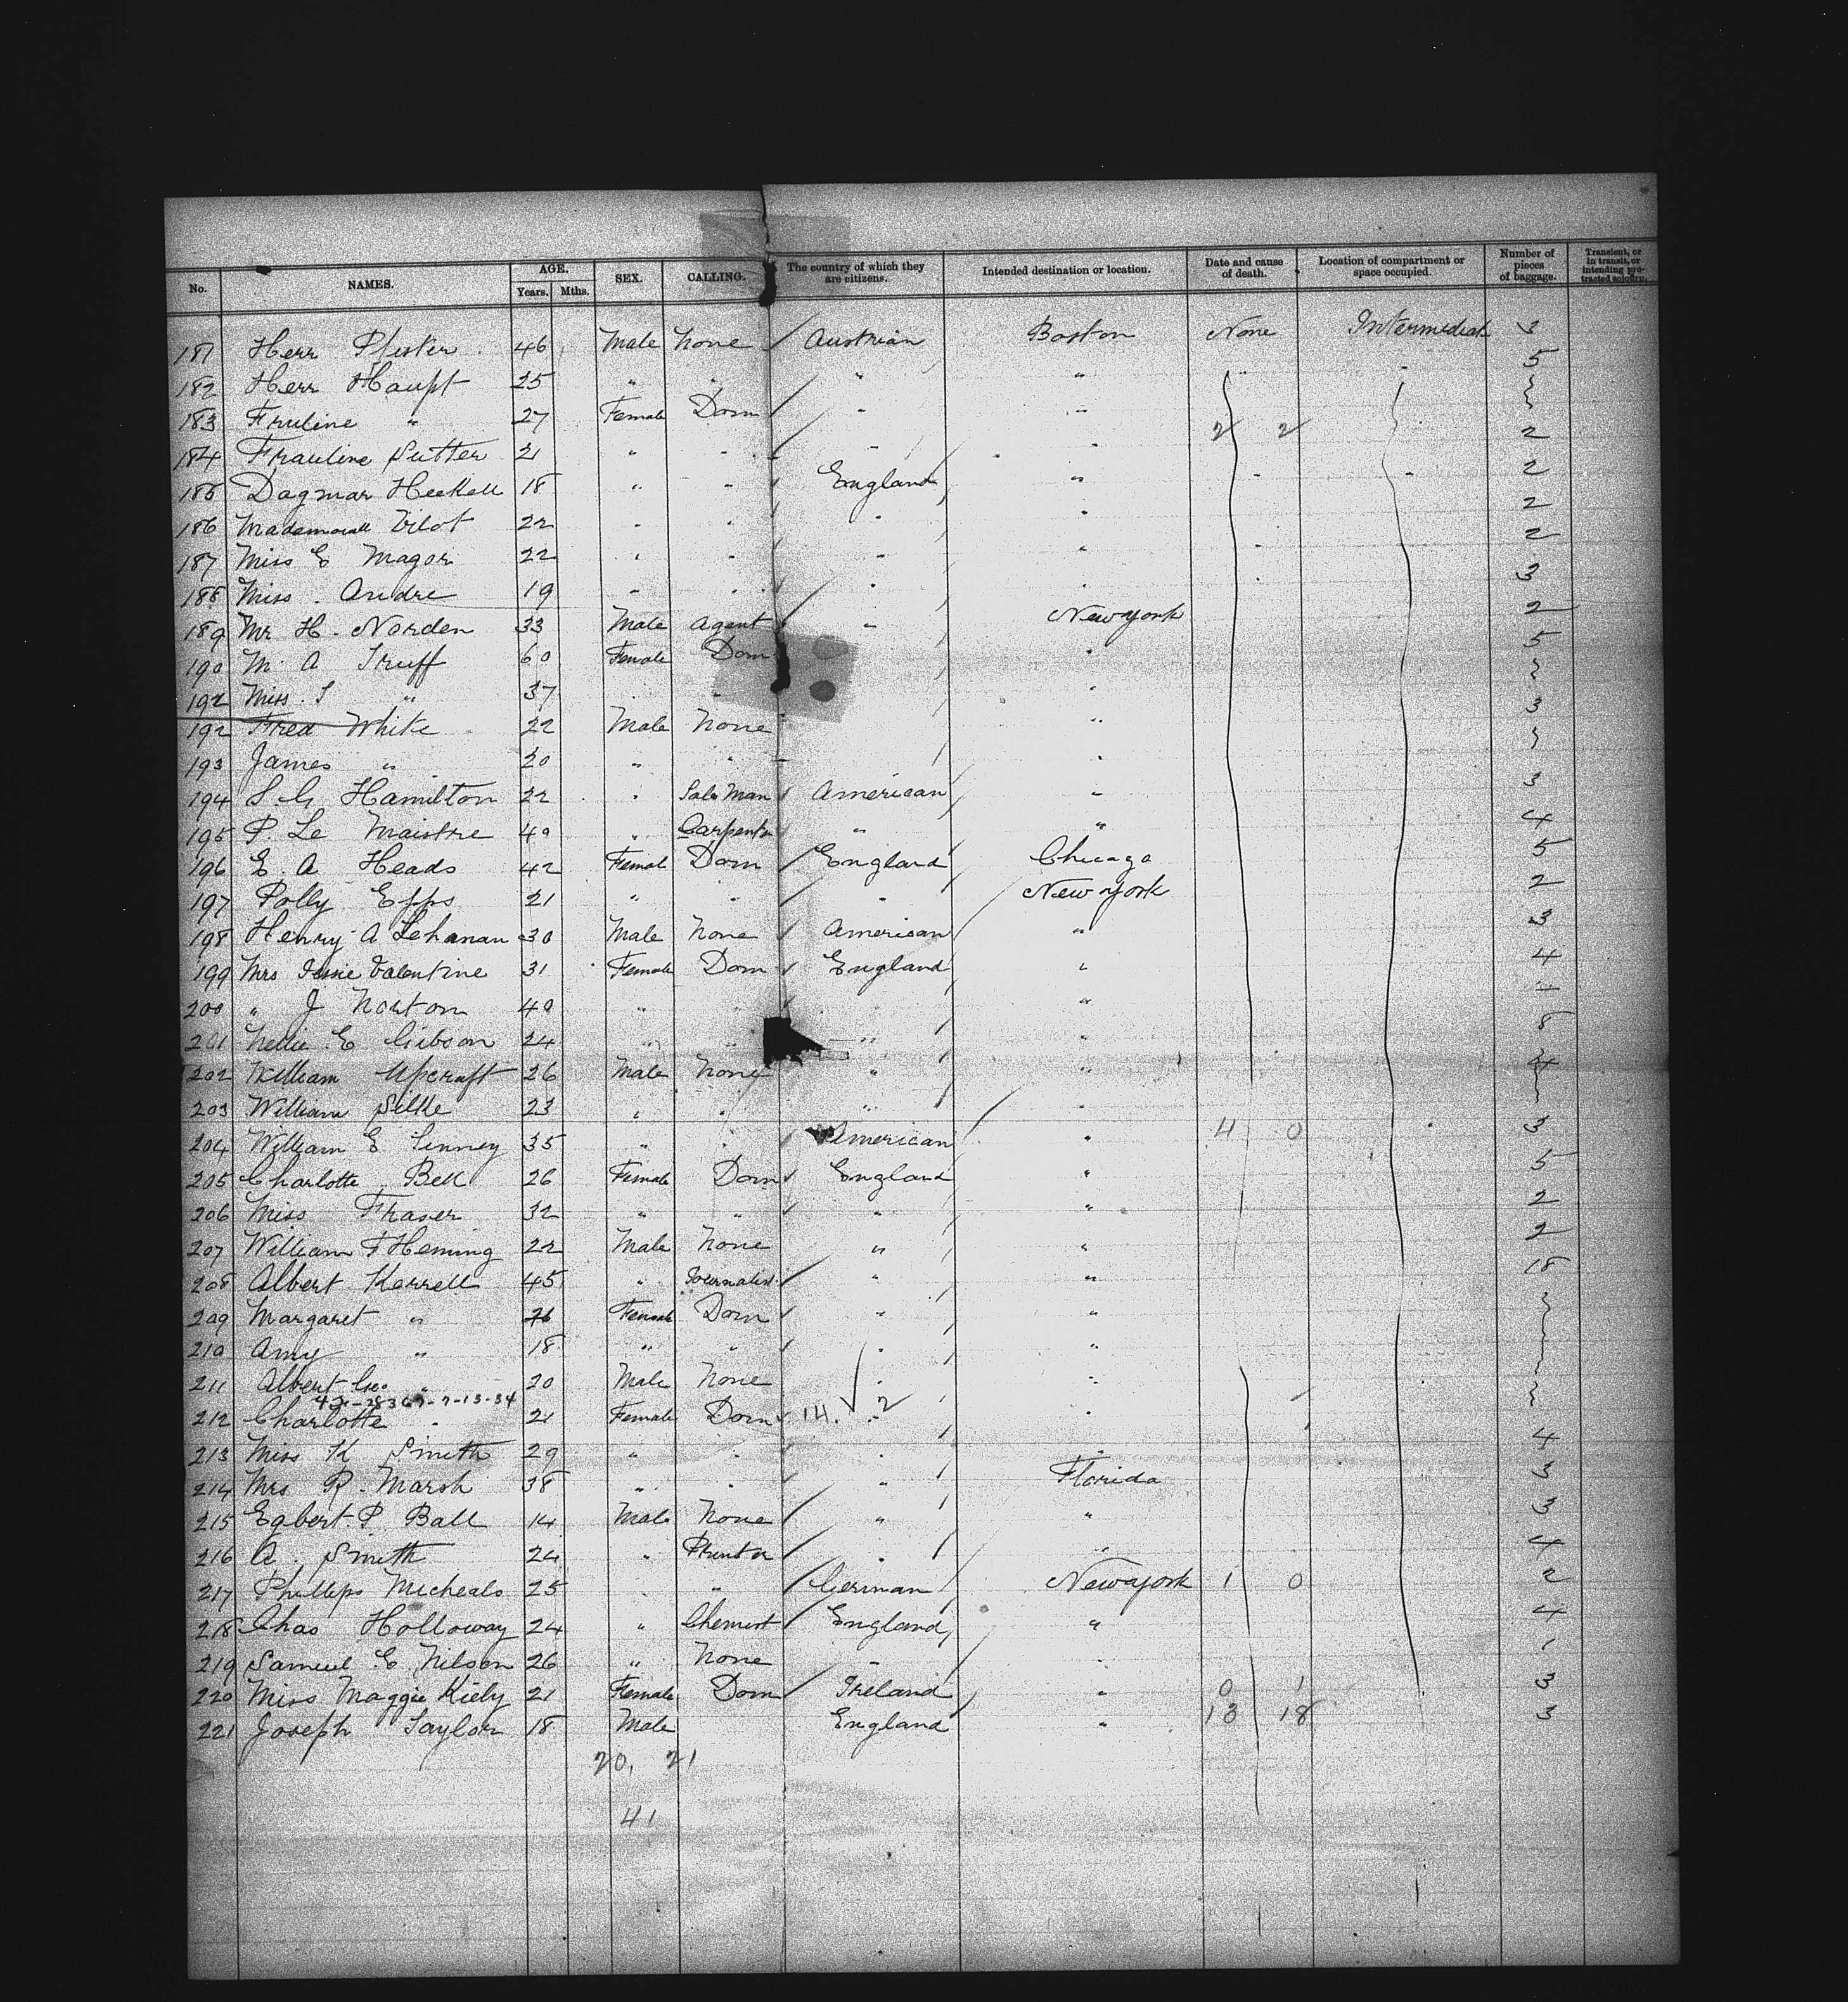 No. NAMES. AGE. Years. Mths. SEX. CALLING. The country of which they are citizens. Intended destination or location. Date and cause of death. Location of compartment or space occupied. Number of pieces of baggage. Transient, or in transit, or intending protracted sojourn.
181 Herr Pfister 46 Male None Austrian Boston None Intermediate 2
182 Herr Haupt 25 " " " " 5
183 Fruline " 27 Female Dom " " }
2 2
184 Frauline Sutter 21 " " " " 2
185 Dagmar Heckell 18 " " England " 2
186 Vilot 22 " " " " 2
187 Miss E Magor 22 " " " " 2
188 Miss Andre 19 " " " " 3
189 Mr H. Norden 33 Male Agent " New York 2
190 M. A Truff 60 Female Dom " 5
192 Miss. S " 37 " " " }
192 Fred White 22 Male None " 3
193 James " 20 " " " }
194 S. G. Hamilton 22 " Sales Man American " 3
195 P Le Maistre 49 " Carpenter " " 4
196 E. A Heads 42 Female Dom England Chicago 5
197 Polly Epps 21 " " " New York 2
198 Henry A Lehanan 30 Male None American " 3
199 Mrs Jessie Valentine 31 Female Dom England " 4
200 " J Norton 40 " " " "
201 Nellie E Gibson 24 " " " " 8
202 William Upcraft 26 Male None " " 4
203 William Silke 23 " " " " }
204 William E Tinney 35 " " American " 4 0 3
205 Charlotte Bell 26 Female Dom England " 5
206 Miss Fraser 32 " " " " 2
207 William F Heming 22 Male None " " 2
208 Albert Kerrell 45 " Journalist " " 18
209 Margaret " Female Dom " " }
210 Amy " 18 " " " " }
211 Albert Geo. " 20 Male None " " }
7-13-34
212 Charlotte " 21 Female Dom 14. 2 " " }
213 Miss K Smith 29 " " " " 4
214 Mrs R. Marsh 38 " " " Florida 3
215 Egbert. P. Ball 14 Male None " " 3
216 A. Smith 24 " Printer " " 4
217 Phillips Micheals 25 " " German New York 1 0 2
218 Chas Holloway 24 " Chemist England " 4
219 Samuel E. Nilson 26 " None " " 1
220 Miss Maggie Kiely 21 Female Dom Ireland " 0 1 3
221 Joseph Taylor 18 Male England " 13 18 3
20, 21
41